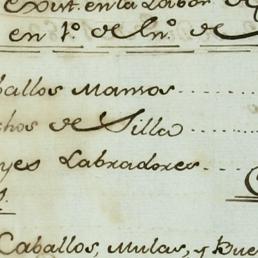 Exist. en la Labor de
en 1.º de En.º de
ballos Mamos
chos de Silla
yes Labradores
s.
Caballos, Mulas, y Bue